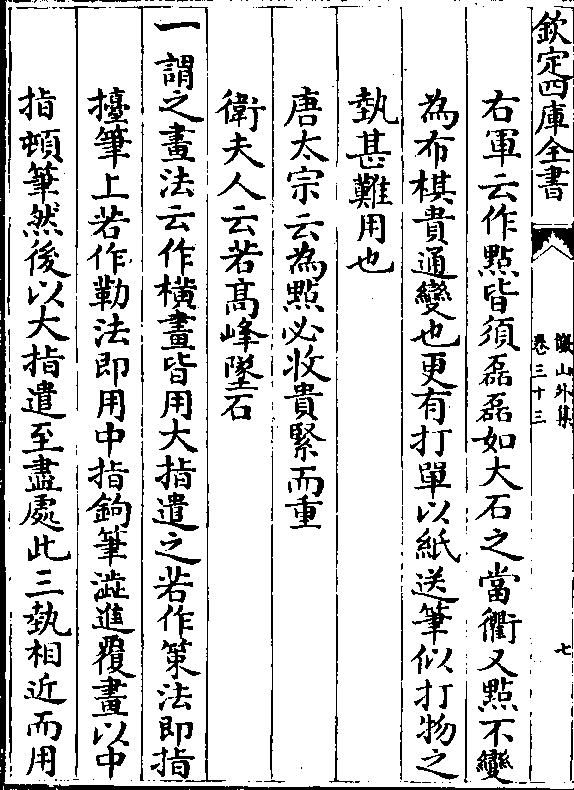 欽定四庫全書
巖山外集
卷三十三
七
右軍云作點皆須磊磊如大石之當衢又點不變
為布棋貴通變也更有打單以紙送筆似打物之
埶甚難用也
唐太宗云為點必收貴緊而重
衛夫人云若髙峰墜石
一謂之畫法云作橫畫皆用大指遣之若作策法即指
擡筆上若作勒法即用中指鉤筆澁進覆畫以中
指頓筆然後以大指遣至盡處此三埶相近而用